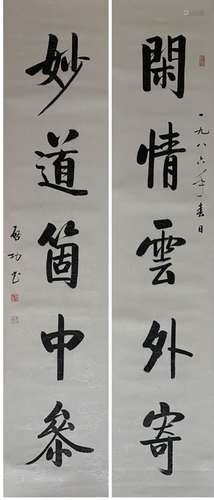 閑情雲外寄
一九八六年春日
妙道箇中參
啟功書